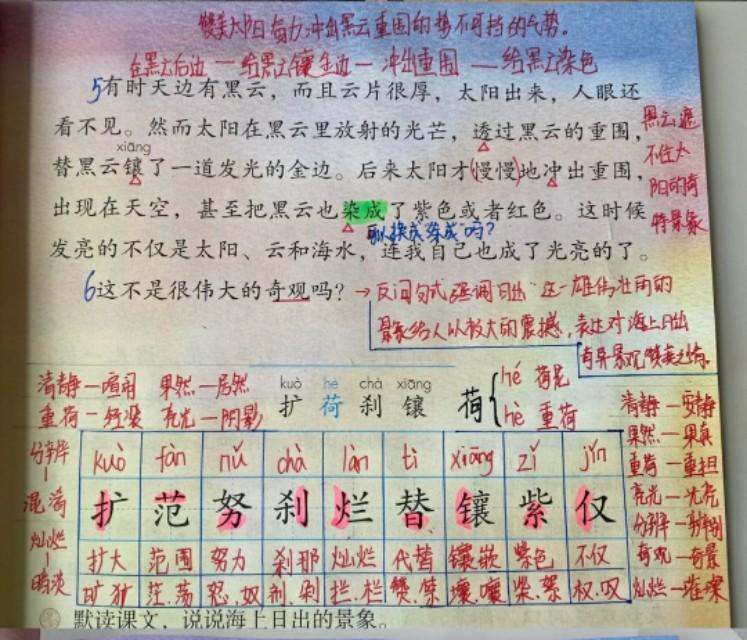 赞美太阳奋力冲出黑云重围的势不可挡的气势。
在黑云后边—给黑云镶金边—冲出重围—给黑云染色
5有时天边有黑云，而且云片很厚，太阳出来，人眼还
看不见。然而太阳在黑云里放射的光芒，透过黑云的重围，
xiāng
替黑云镶了一道发光的金边。后来太阳才(慢慢)地冲出重围，
出现在天空，甚至把黑云也染成了紫色或者红色。这时候
换成"染成"吗？
发亮的不仅是太阳、云和海水，连我自己也成了光亮的了。
6这不是很伟大的奇观吗？→反问句式 强调日出这一雄伟壮丽的
景象给人以极大的震撼，表达对海上日出
奇异景观赞美之情
黑云遮
不住太
阳的奇
特景象
清静—喧闹 果然—居然
重荷—轻装 亮光—阴影
kuò hé chà xiāng
扩 荷 刹 镶
荷 hé 荷花
hè 重荷
分辨
混淆
灿烂
暗淡
kuò fàn nǔ chà làn tì xiāng zǐ jǐn
扩 范 努 刹 烂 替 镶 紫 仅
扩大 范围 努力 刹那 灿烂 代替 镶嵌 紫色 不仅
旷犷 茫.荡 怒.奴 拦.栏 壤.嚷 柴.絮 权.叹
清静—安静
果然—果真
重荷—重担
亮光—光亮
分辨—辨别
奇观—奇景
灿烂—璀璨
默读课文，说说海上日出的景象。